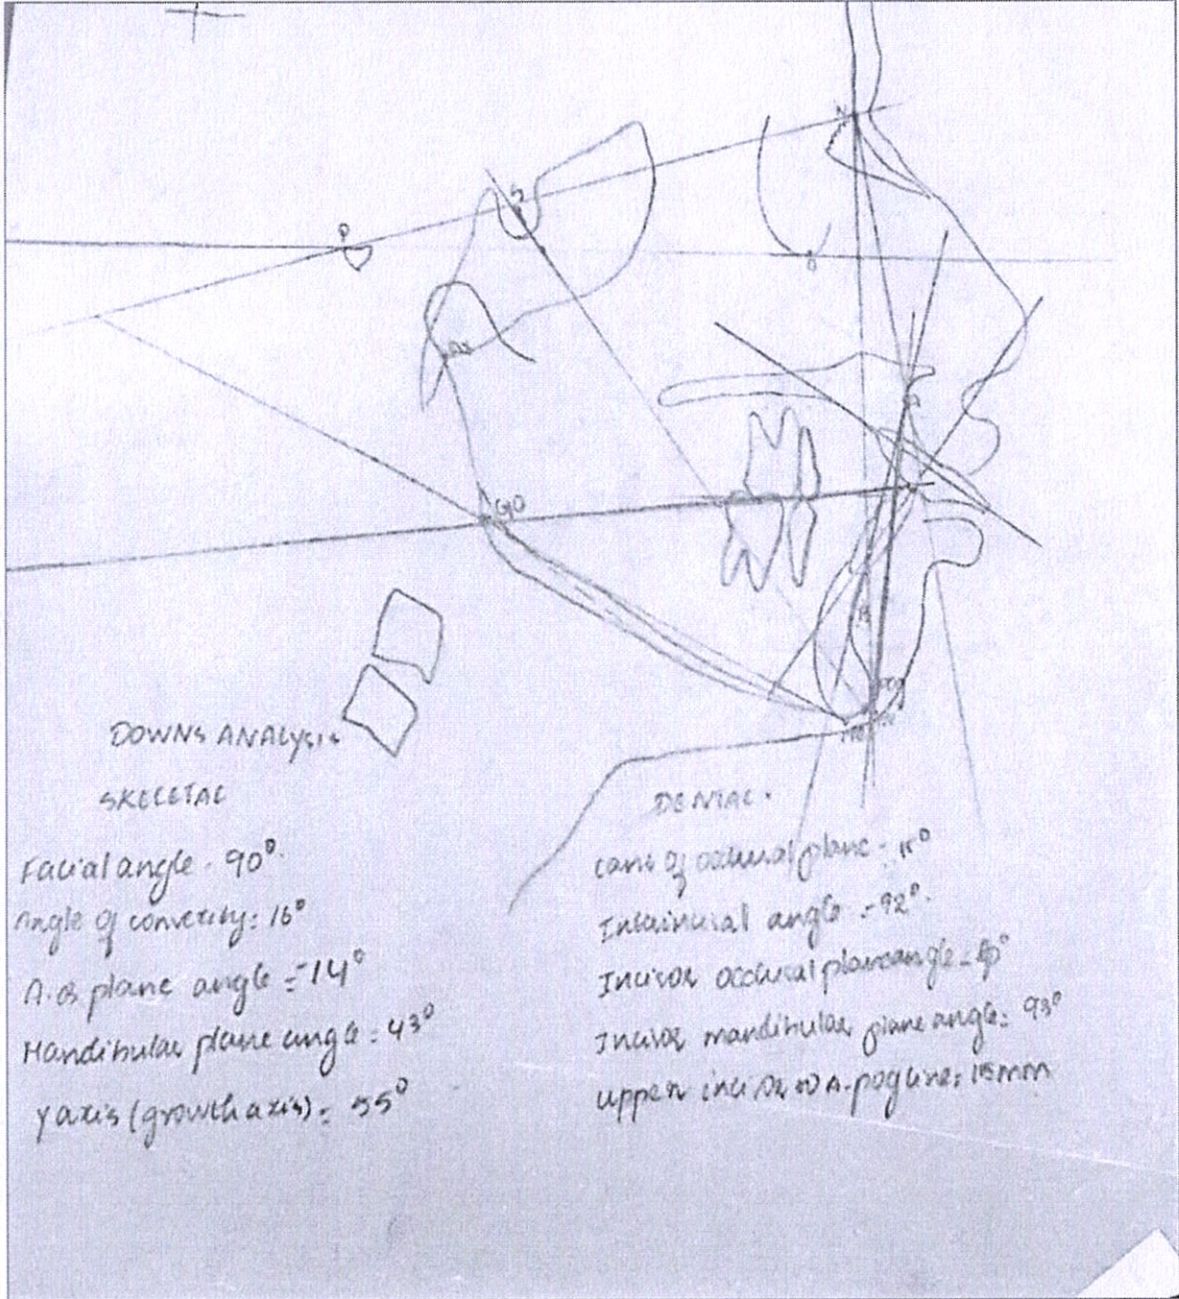 N
S
P
O
Ar
A
GO
B
Pog
Me
DOWNS ANALYSIS
SKELETAL
Facial angle - 90°.
Angle of convexity: 16°
plane angle = -14°
Mandibular plane angle = 43°
Y axis (growth axis) = 55°
DENTAL.
cant of occlusal plane -
Interincisal angle = 92°.
Incisor occlusal plane angle -
Incisor mandibular plane angle: 93°
upper incisor to A-pog line = 15mm